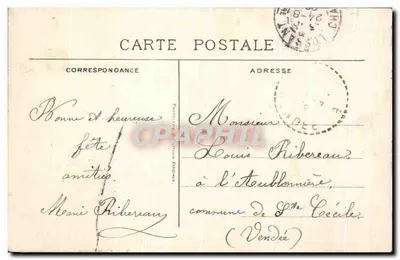 CARTE POSTALE
CORRESPONDANCE
ADRESSE
Bonne et heureuse
fête
amitiés
Mémé Ribereau
Monsieur
Louis Ribereau
à l'Aublonnière
commune de Ste Cécile
(Vendée)
CPAPHIL